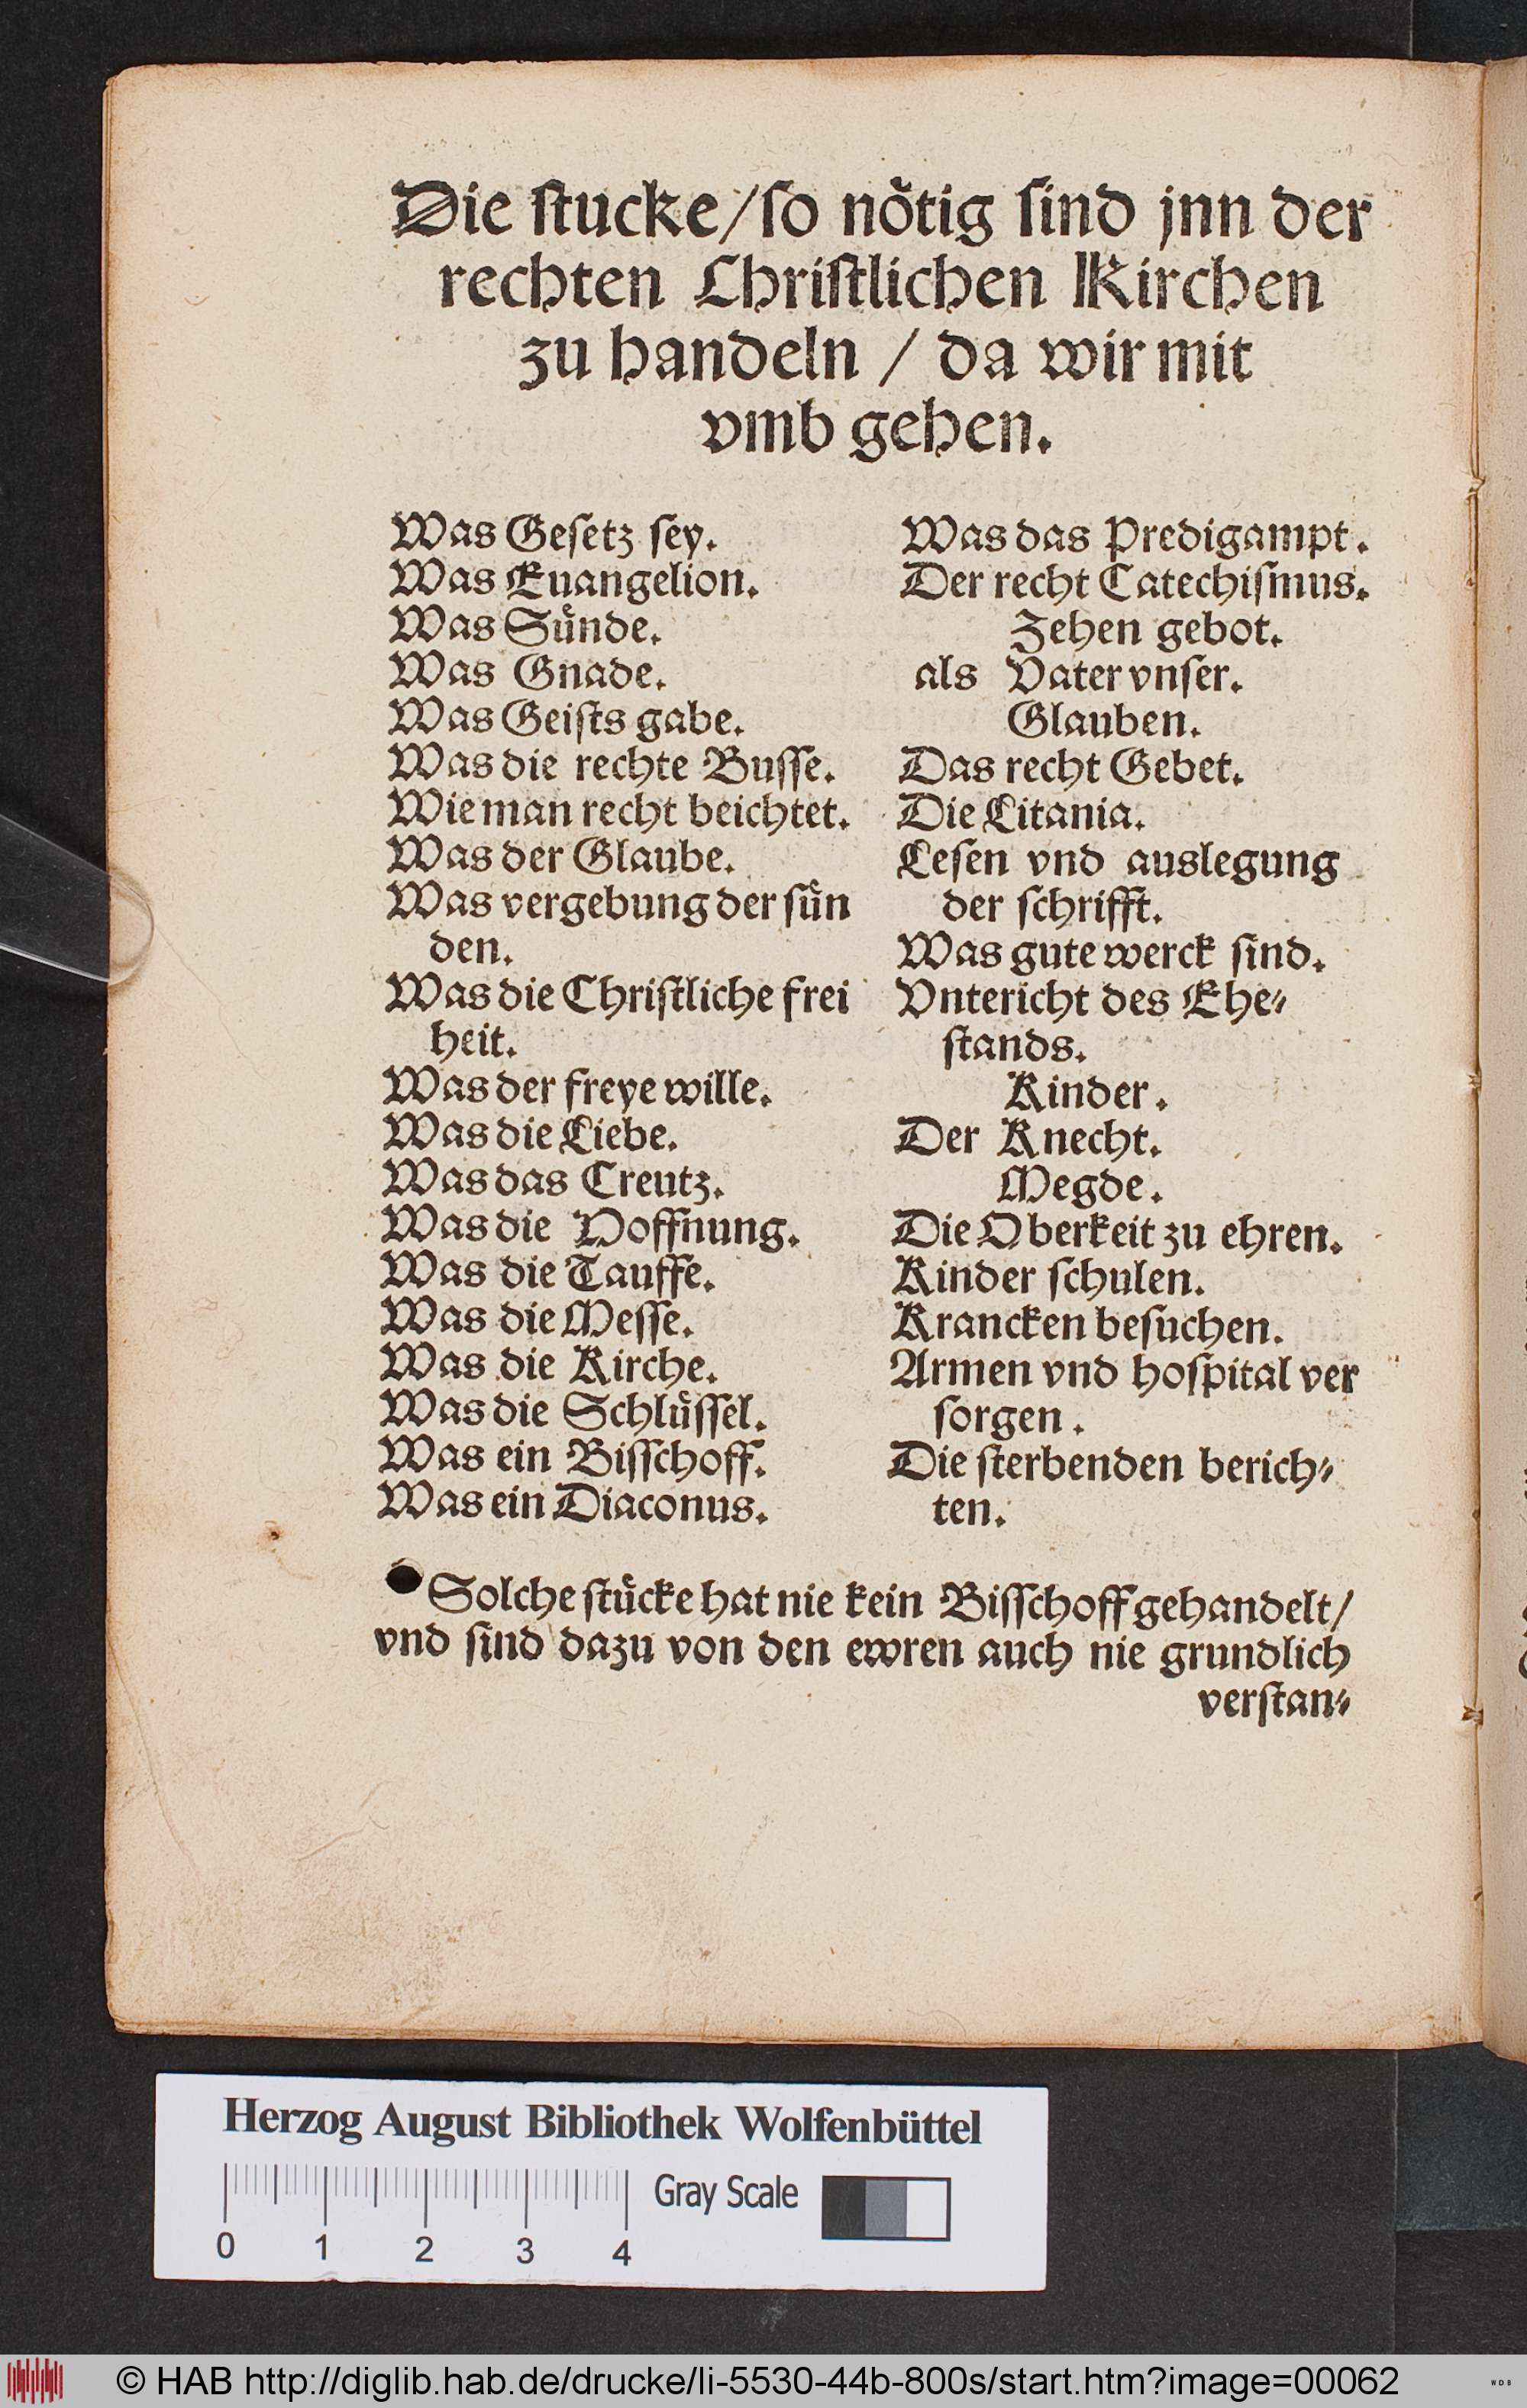 Die ſtucke/ſo noͤtig ſind jnn der
rechten Chriſtlichen Kirchen
zu handeln / da wir mit
vmb gehen.
Was Geſetz ſey.
Was Euangelion.
Was Suͤnde.
Was Gnade.
Was Geiſts gabe.
Was die rechte Buſſe.
Wie man recht beichtet.
Was der Glaube.
Was vergebung der ſuͤn
den.
Was die Chriſtliche frei
heit.
Was der freye wille.
Was die Liebe.
Was das Creutz.
Was die Hoffnung.
Was die Tauffe.
Was die Meſſe.
Was die Kirche.
Was die Schluͤſſel.
Was ein Biſſchoff.
Was ein Diaconus.
Was das Predigampt.
Der recht Catechiſmus.
Zehen gebot.
als Vater vnſer.
Glauben.
Das recht Gebet.
Die Litania.
Leſen vnd auslegung
der ſchrifft.
Was gute werck ſind.
Vntericht des Ehe⸗
ſtands.
Kinder.
Der Knecht.
Megde.
Die Oberkeit zu ehren.
Kinder ſchulen.
Krancken beſuchen.
Armen vnd hoſpital ver
ſorgen.
Die ſterbenden berich⸗
ten.
Solche ſtuͤcke hat nie kein Biſſchoff gehandelt/
vnd ſind dazu von den ewren auch nie grundlich
verſtan⸗
Herzog August Bibliothek Wolfenbüttel
Gray Scale
0 1 2 3 4
© HAB http://diglib.hab.de/drucke/li-5530-44b-800s/start.htm?image=00062
WDB